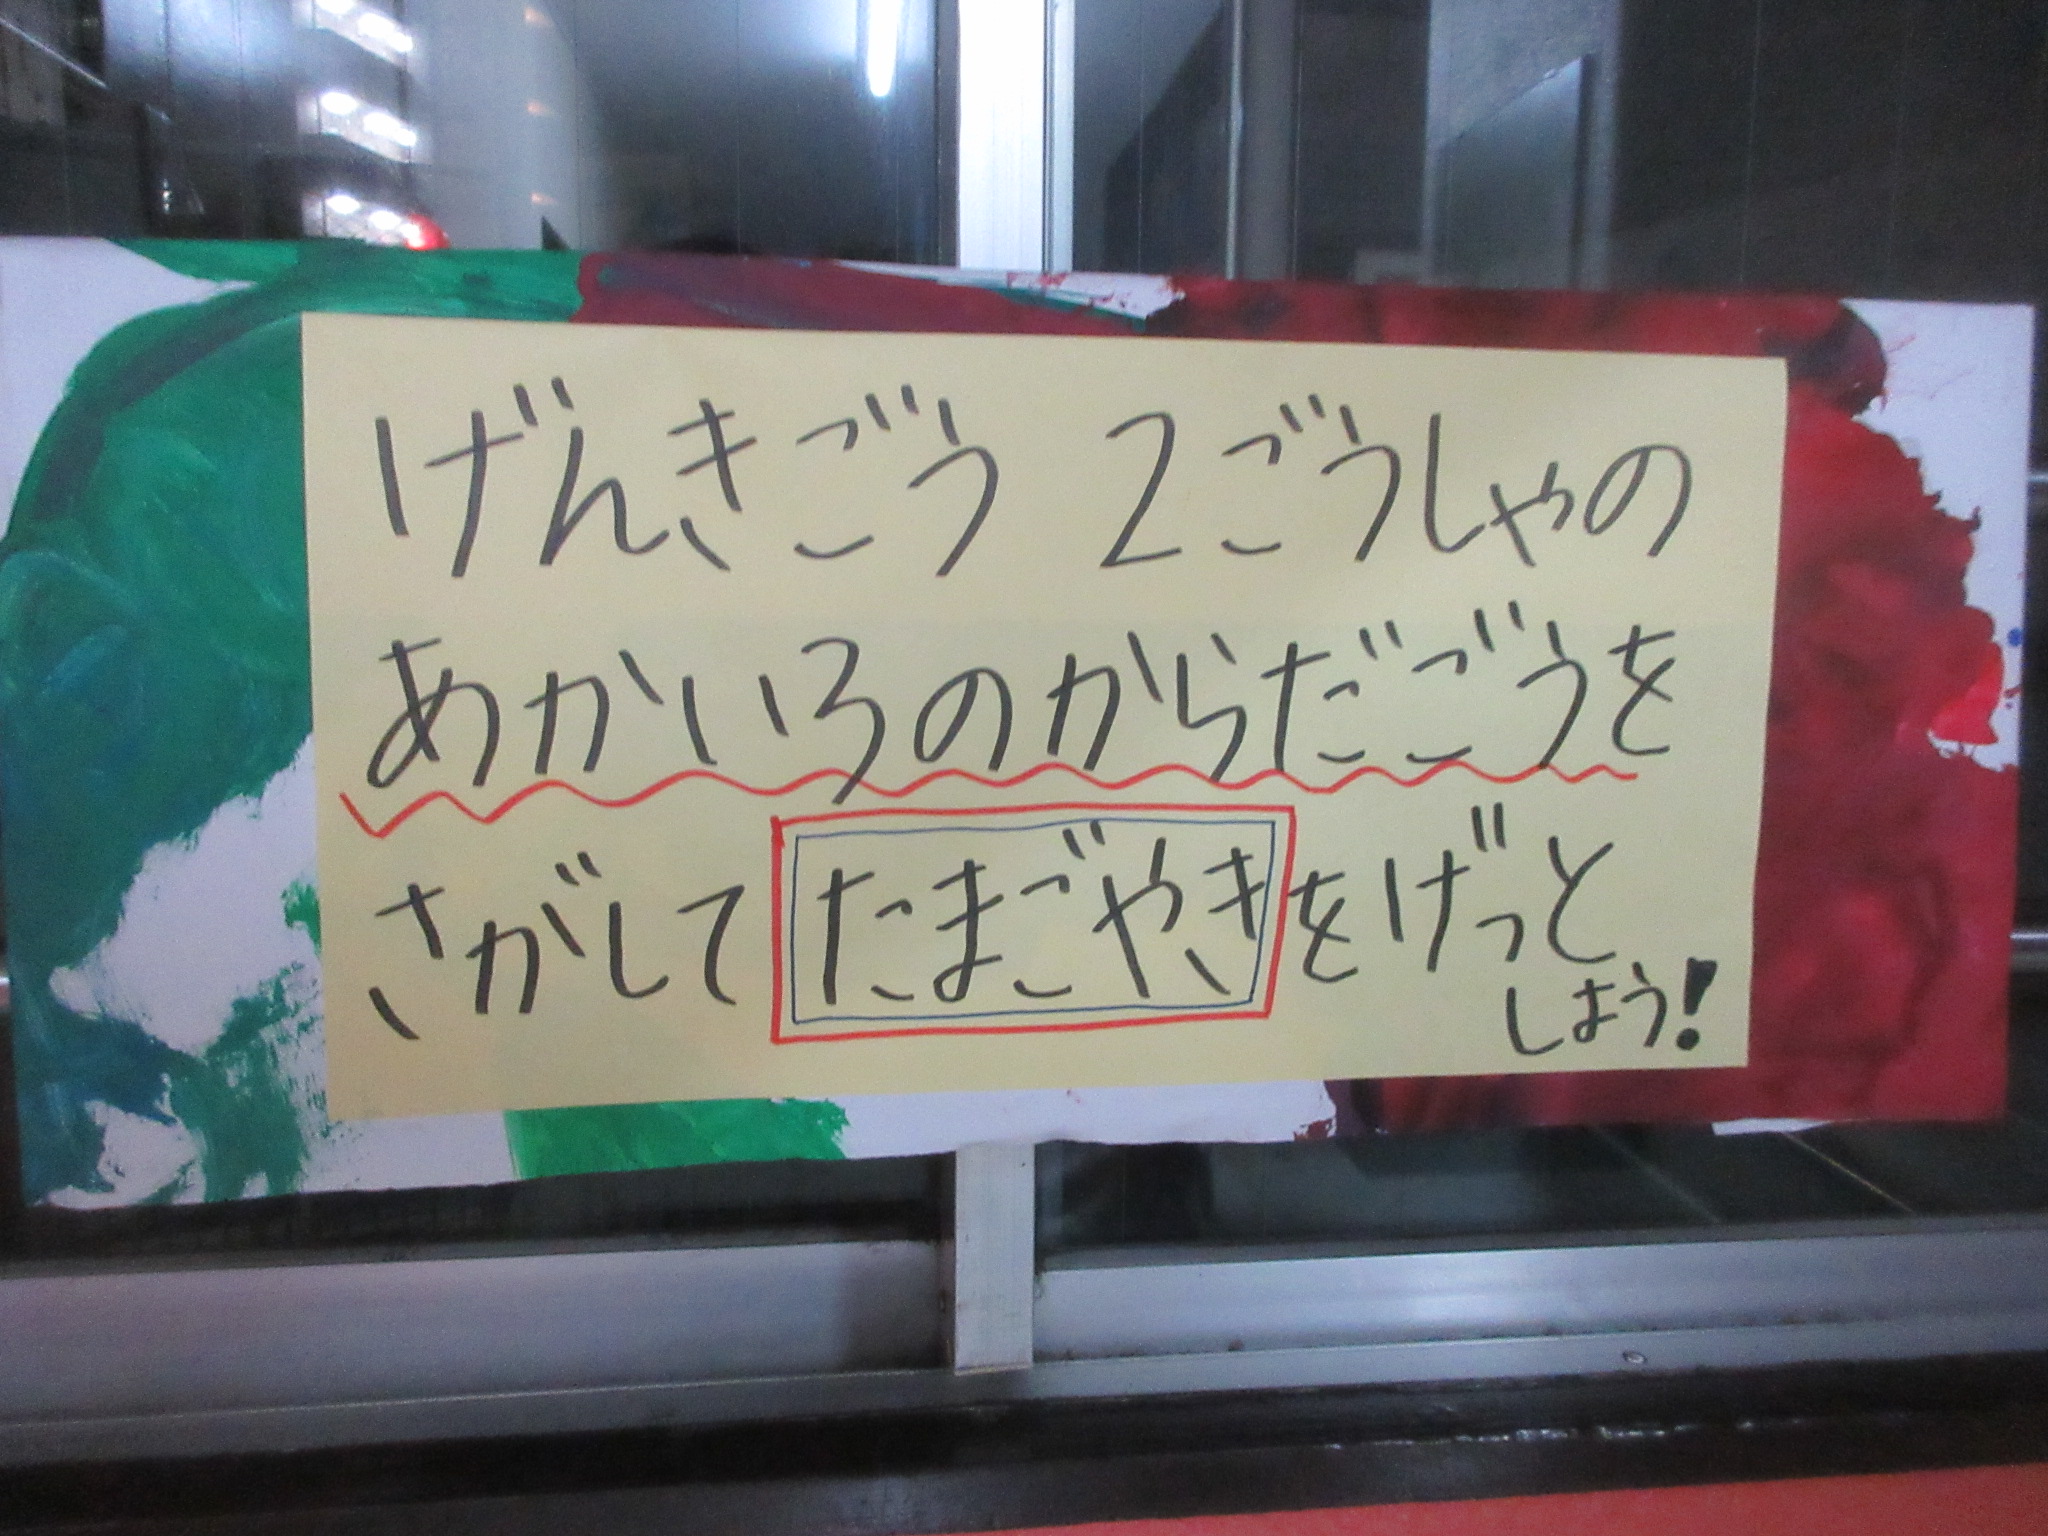 げんきごう 2ごうしゃの
あかいろのからだごうを
さがしてたまごやきをげっと
しよう!